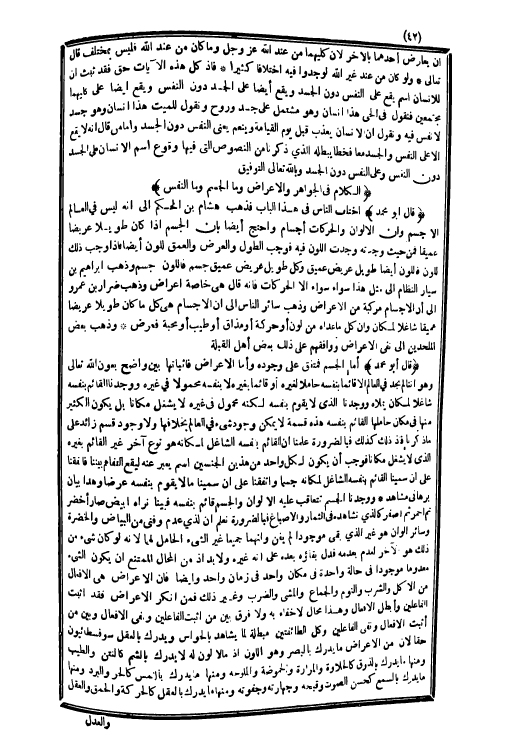 (٤٢)
ان يعارض أحدهما بالآخر لان كليهما من عند الله عز وجل وما كان من عند الله فليس بمختلف قال
تعالى * ولو كان من عند غير الله لوجدوا فيه اختلافا كثيرا * فاذ كل هذه الآيات حق فقد ثبت ان
للانسان اسم يقع على النفس دون الجسد ويقع أيضا على الجسد دون النفس ويقع ايضا على كليهما
مجتمعين فنقول فى الحى هذا انسان وهو مشتمل على جسد وروح ونقول للميت هذا انسان وهو جسد
لا نفس فيه ونقول ان الانسان يعذب قبل يوم القيامة وينعم يعنى النفس دون الجسد وأما من قال انه لا يقع
الا على النفس والجسد معا فخطأ يبطله الذى ذكرنا من النصوص التى فيها وقوع اسم الانسان على الجسد
دون النفس وعلى النفس دون الجسد وبالله تعالى التوفيق
﴿ الكلام فى الجواهر والاعراض وما الجسم وما النفس ﴾
﴿ قال ابو محمد ﴾ اختلف الناس فى هذا الباب فذهب هشام بن الحكم الى انه ليس فى العالم
الا جسم وان الالوان والحركات أجسام واحتج أيضا بان الجسم اذا كان طويلا عريضا
عميقا فمن حيث وجدته وجدت اللون فيه فوجب الطول والعرض والعمق للون أيضا فاذا وجب ذلك
للون فاللون أيضا طويل عريض عميق وكل طويل عريض عميق جسم فاللون جسم وذهب ابراهيم بن
سيار النظام الى مثل هذا سواء سواء الا الحركات فانه قال هى خاصة اعراض وذهب ضرار بن عمرو
الى أن الاجسام مركبة من الاعراض وذهب سائر الناس الى ان الاجسام هى كل ما كان طويلا عريضا
عميقا شاغلا لمكان وان كل ماعداه من لون أو حركة أو مذاق أو طيب أو محبة فعرض * وذهب بعض
الملحدين الى نفى الاعراض ووافقهم على ذلك بعض أهل القبلة
﴿ قال أبو محمد ﴾ أما الجسم فمتفق على وجوده وأما الاعراض فاثباتها بين واضح بعون الله تعالى
وهو اننا لم نجد فى العالم الا قائما بنفسه حاملا لغيره أو قائما بغيره لا بنفسه محمولا فى غيره ووجدنا القائم بنفسه
شاغلا لمكان يملأه ووجدنا الذى لا يقوم بنفسه لكنه محمول فى غيره لا يشغل مكانا بل يكون الكثير
منها فى مكان حاملها القائم بنفسه هذه قسمة لا يمكن وجود شىء فى العالم بخلافها ولا وجود قسم زائد على
ما ذكرنا فاذ ذلك كذلك فبالضرورة علمنا ان القائم بنفسه الشاغل لمكانه هو نوع آخر غير القائم بغيره
الذى لا يشغل مكانا فوجب أن يكون لكل واحد من هذين الجنسين اسم يعبر عنه ليقع التفاهم بيننا فاتفقنا
على ان سمينا القائم بنفسه الشاغل لمكانه جسما واتفقنا على ان سمينا مالا يقوم بنفسه عرضا وهذا بيان
برهانى مشاهد * ووجدنا الجسم تتعاقب عليه الالوان والجسم قائم بنفسه فبينا نراه ابيض صار أخضر
ثم احمر ثم اصفر كالذى نشاهده فى الثمار والاصباغ فبالضرورة نعلم ان الذى عدم وفنى من البياض والخضرة
وسائر الالوان هو غير الذى بقى موجودا لم يفن وانهما جميعا غير الشىء الحامل لهما لانه لو كان شىء من
ذلك هو الآخر لعدم بعدمه فدل بقاؤه بعده على انه غيره ولا بد اذ من المحال الممتنع ان يكون الشىء
معدوما موجودا فى حالة واحدة فى مكان واحد فى زمان واحد وايضا فان الاعراض هى الافعال
من الاكل والشرب والنوم والجماع والمشى والضرب وغير ذلك فمن انكر الاعراض فقد اثبت
الفاعلين وأبطل الافعال وهذا محال لا خفاء به ولا فرق بين من اثبت الفاعلين ونفى الافعال وبين من
أثبت الافعال ونفى الفاعلين وكل الطائفتين مبطلة لما يشاهد بالحواس ويدرك بالعقل سوفسطائيون
حقا لان من الاعراض ما يدرك بالبصر وهو اللون اذ مالا لون له لا يدرك بالشم كالنتن والطيب
ومنها ما يدرك بالذوق كالحلاوة والمرارة والحموضة والملوحة ومنها ما يدرك باللمس كالحر والبرد ومنها
ما يدرك بالسمع كحسن الصوت وقبحه وجهارته وجفوته ومنها ما يدرك بالعقل كالحركة والحمق والعقل
والعدل